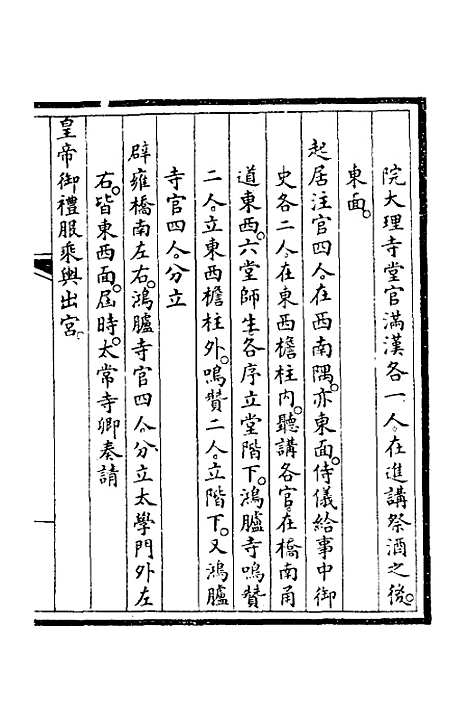 院大理寺堂官滿漢各一人。在進講祭酒之後。
東面。
起居注官四人。在西南隅。亦東面。侍儀給事中御
史各二人。在東西檐柱內。聽講各官。在橋南甬
道東西。六堂師生。各序立堂階下。鴻臚寺鳴贊
二人。立東西檐柱外。鳴贊二人。立階下。又鴻臚
寺官四人。分立
辟雍橋南左右。鴻臚寺官四人。分立太學門外左
右。皆東西面。屆時。太常寺卿奏請
皇帝御禮服乘輿出宮。